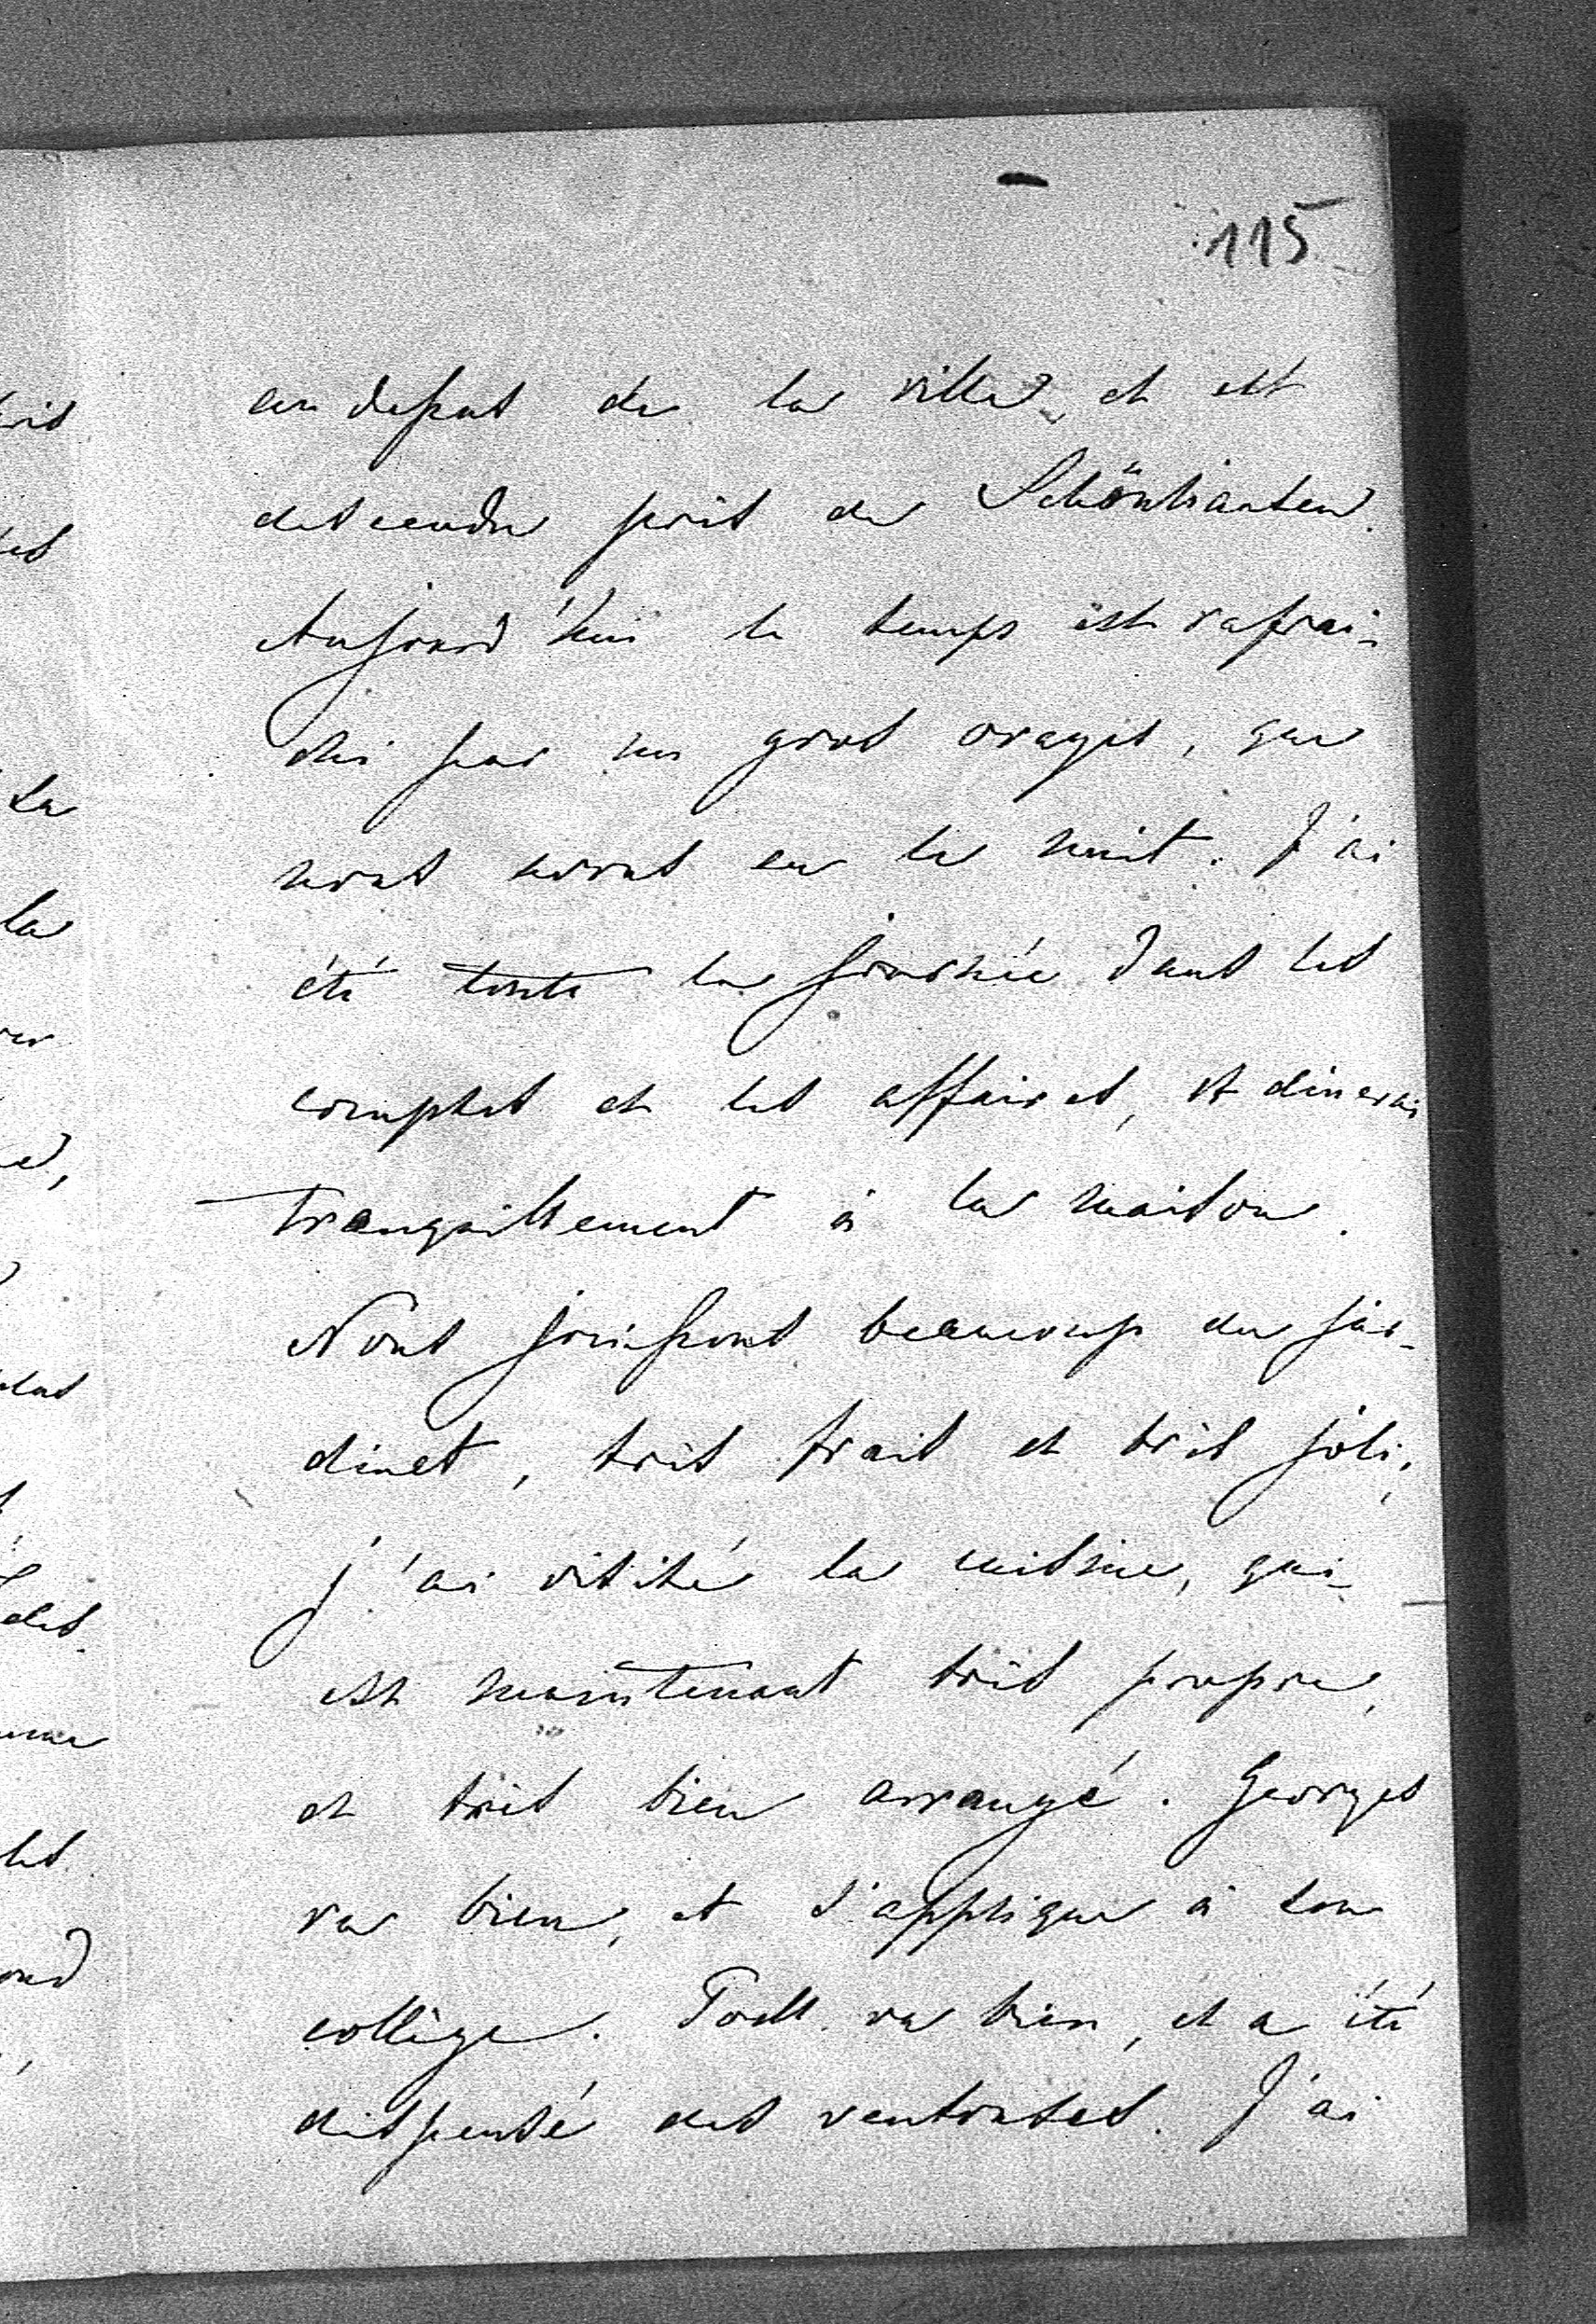 115
au dessus de la ville, et est
descendu près de Schönkirchen.
Aujourd'hui le temps est rafrai-
chi par un gros orages, que
nous avons eu la nuit. J'ai
été toute la journée dans les
comptes et les affaires, et dinerai
tranquillement à la maison.
Nous jouissons beaucoup du jar-
dinet, très frais et très joli,
j'ai visité la cuisine, qui
est maintenant très propre,
et très bien arrangé. Georges
va bien, et s'applique à son
collège. va bien, et a été
dispensé des ventouses. J'ai